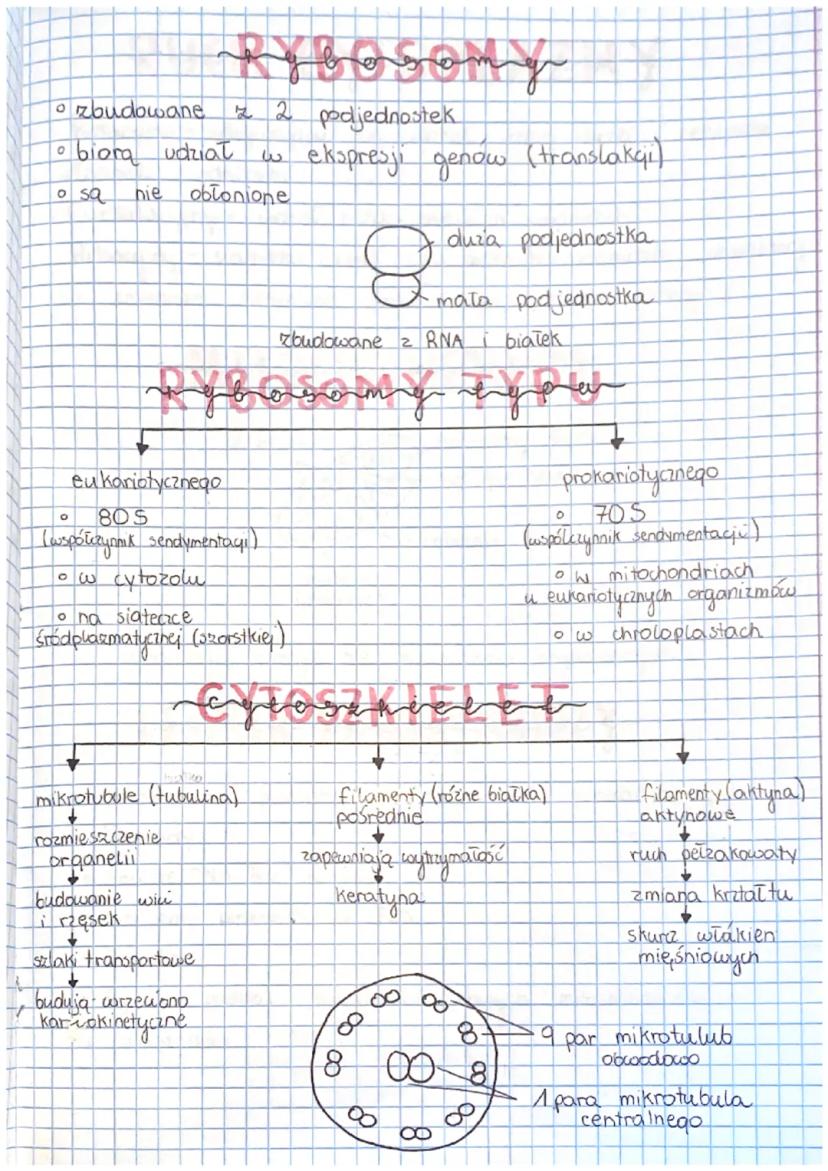 RYBOSOMY
rybosomy
◦ zbudowane z 2 podjednostek
◦ biorą udział w ekspresji genów (translakcji)
◦ są nie obłonione
duża podjednostka
mała podjednostka
zbudowane z RNA i białek
RYBOSOMY TYPU
rybosomy typu
eukariotycznego
◦ 80S
(współczynnik sendymentacji)
◦ w cytozolu
◦ na siateczce
śródplazmatycznej (szorstkiej)
prokariotycznego
◦ 70S
(współczynnik sendymentacji)
◦ w mitochondriach
u eukariotycznych organizmów
◦ w chroloplastach
CYTOSZKIELET
cytoszkielet
mikrotubule (tubulina)
rozmieszczenie
organelii
budowanie wici
i rzęsek
szlaki transportowe
budują wrzeciono
kariokinetyczne
filamenty (różne białka)
pośrednie
zapewniają wytrzymałość
keratyna
filamenty (aktyna)
aktynowe
ruch pełzakowaty
zmiana kształtu
skurcz włókien
mięśniowych
9 par mikrotulub
obwodowo
1 para mikrotubula
centralnego